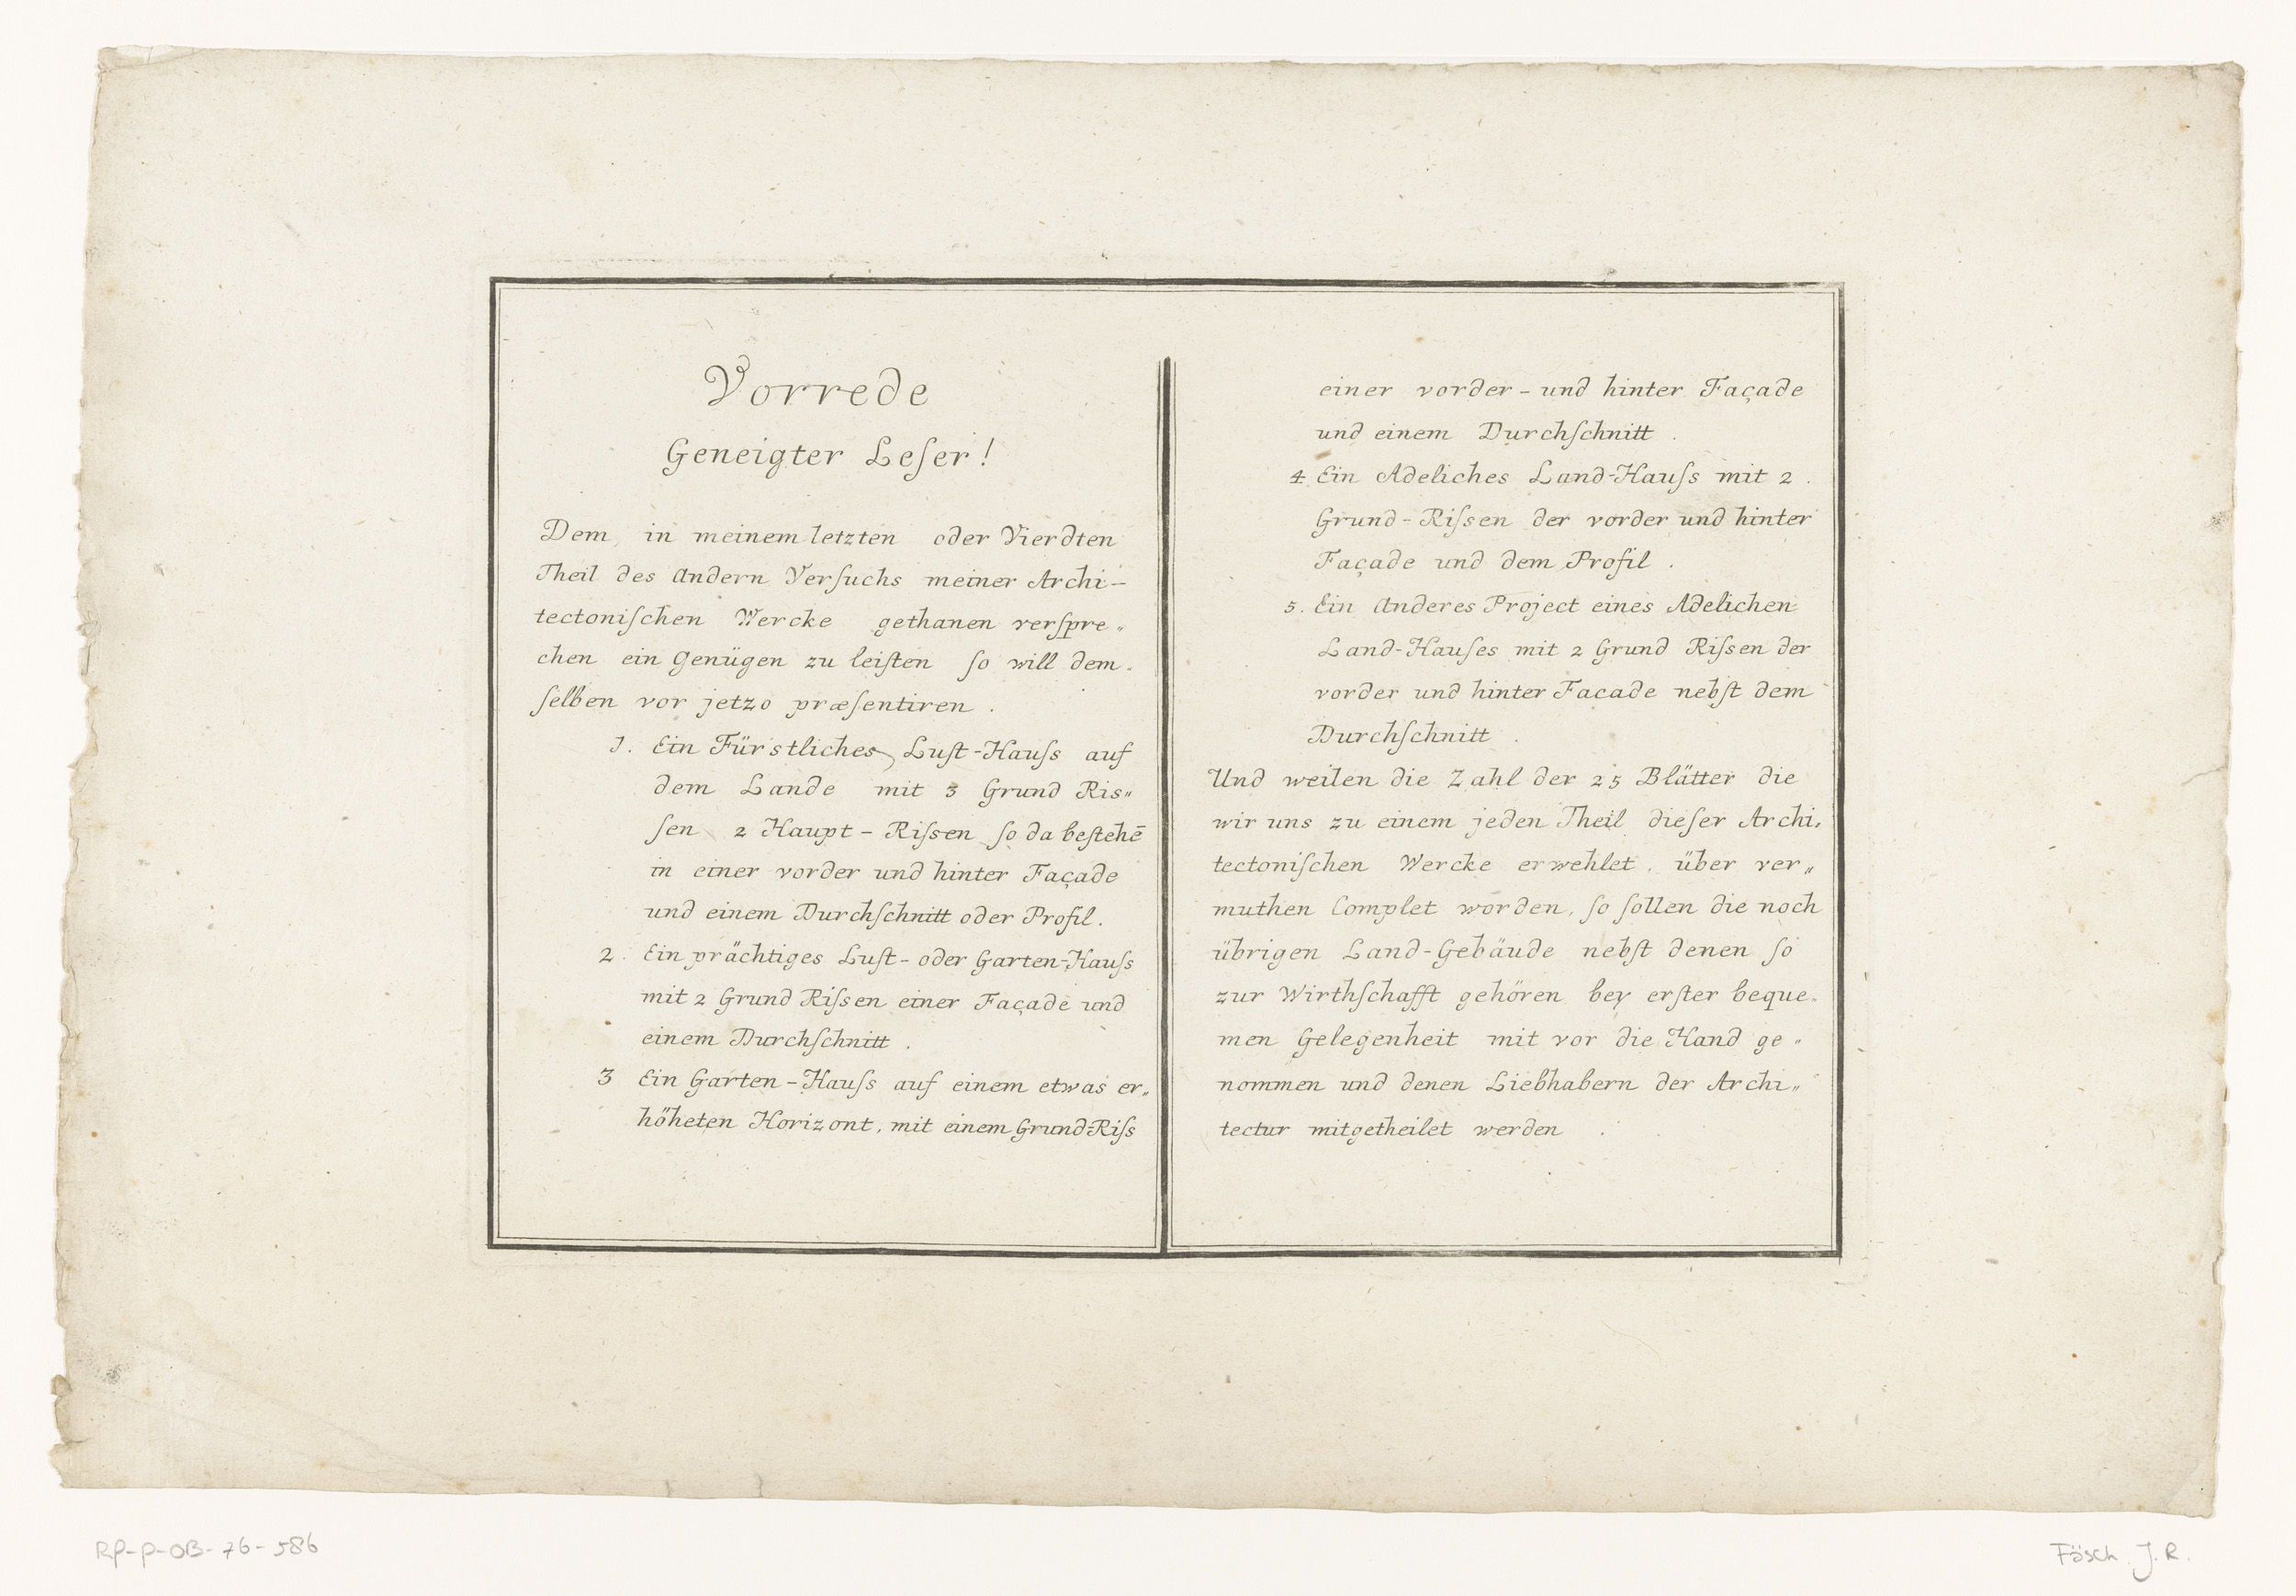 Vorrede
Geneigter Leſer!
Dem, in meinem letzten oder Vierdten
Theil des Andern Verſuchs meiner Archi-
tectoniſchen Wercke gethanen verſpre„
chen ein Genügen zu leiſten ſo will dem„
ſelben vor jetzo præſentiren.
1. Ein Fürstliches Luſt-Hauſs auf
dem Lande mit 3 Grund Ris„
ſen 2 Haupt-Riſsen ſo da beſtehē
in einer vorder und hinter Façade
und einem Durchſchnitt oder Profil.
2. Ein prächtiges Luſt- oder Garten-Hauſs
mit 2 Grund Riſsen einer Façade und
einem Durchſchnitt.
3 Ein Garten-Hauſs auf einem etwas er„
höheten Horizont, mit einem Grund Riſs
einer vorder- und hinter Façade
und einem Durchſchnitt.
4 Ein Adeliches Land-Hauſs mit 2.
Grund-Riſsen der vorder und hinter
Façade und dem Profil.
5. Ein Anderes Project eines Adelichen
Land-Hauſes mit 2 Grund Riſsen der
vorder und hinter Facade nebſt dem
Durchſchnitt.
Und weilen die Zahl der 25 Blätter die
wir uns zu einem jeden Theil dieſer Archi„
tectoniſchen Wercke erwehlet, über ver„
muthen Complet worden, ſo ſollen die noch
übrigen Land-Gebäude nebſt denen ſo
zur Wirthſchafft gehören bey erſter beque„
men Gelegenheit mit vor die Hand ge„
nommen und denen Liebhabern der Archi„
tectur mitgetheilet werden.
RP-P-OB-76-586
Fäsch, J.R.